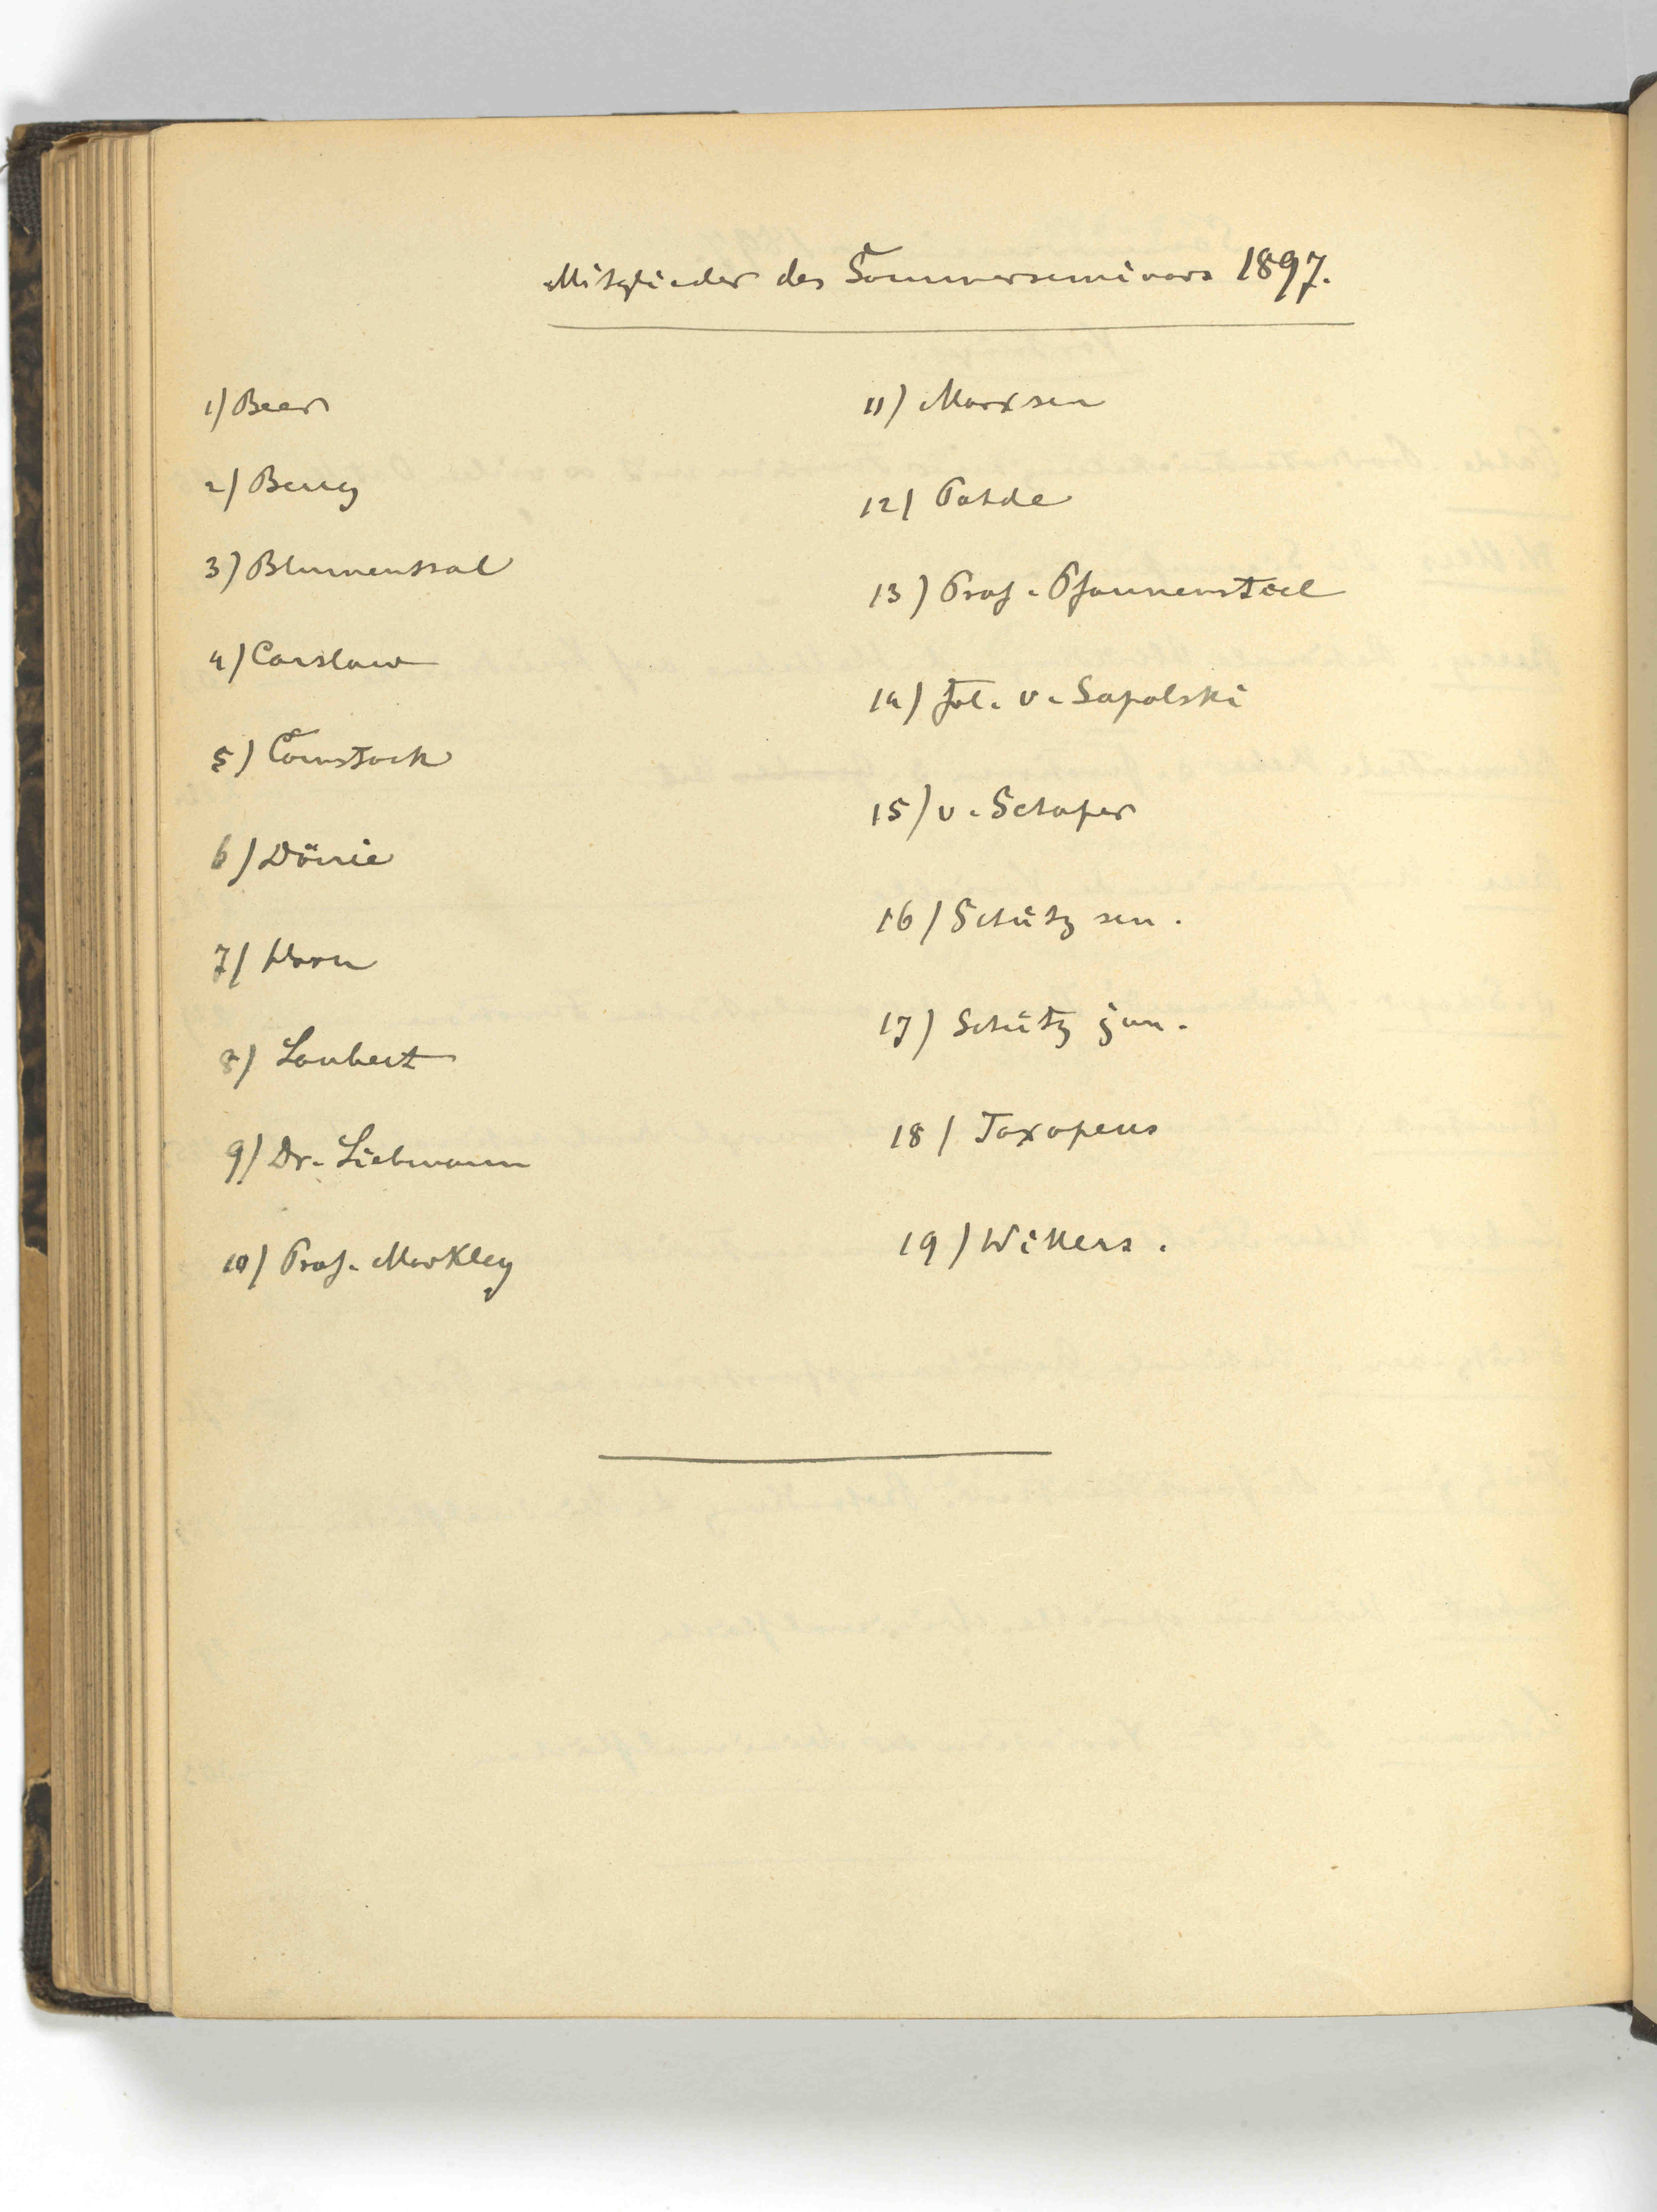 Mitglieder des Sommerseminars 1897.
1) Beer
2) Berry
3) Blumenthal
4) Carslaw
5) Comstock
6) Dörrie
7) Horn
8) Laubert
9) Dr. Liebmann
10) Prof. Markley
11) Marxsen
12) Pahde
13) Prof. Pfannenstiel
14) Frl. v. Sapolski
15) v. Schaper
16) Schütz sen.
17) Schütz jun.
18) Taxopeus
19) Willers.